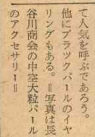 て人気を呼ぶであろう。
他にブラックパールのイヤ
リングもある。＝写真は長
谷川商会の中空大粒パール
のアクセサリー＝